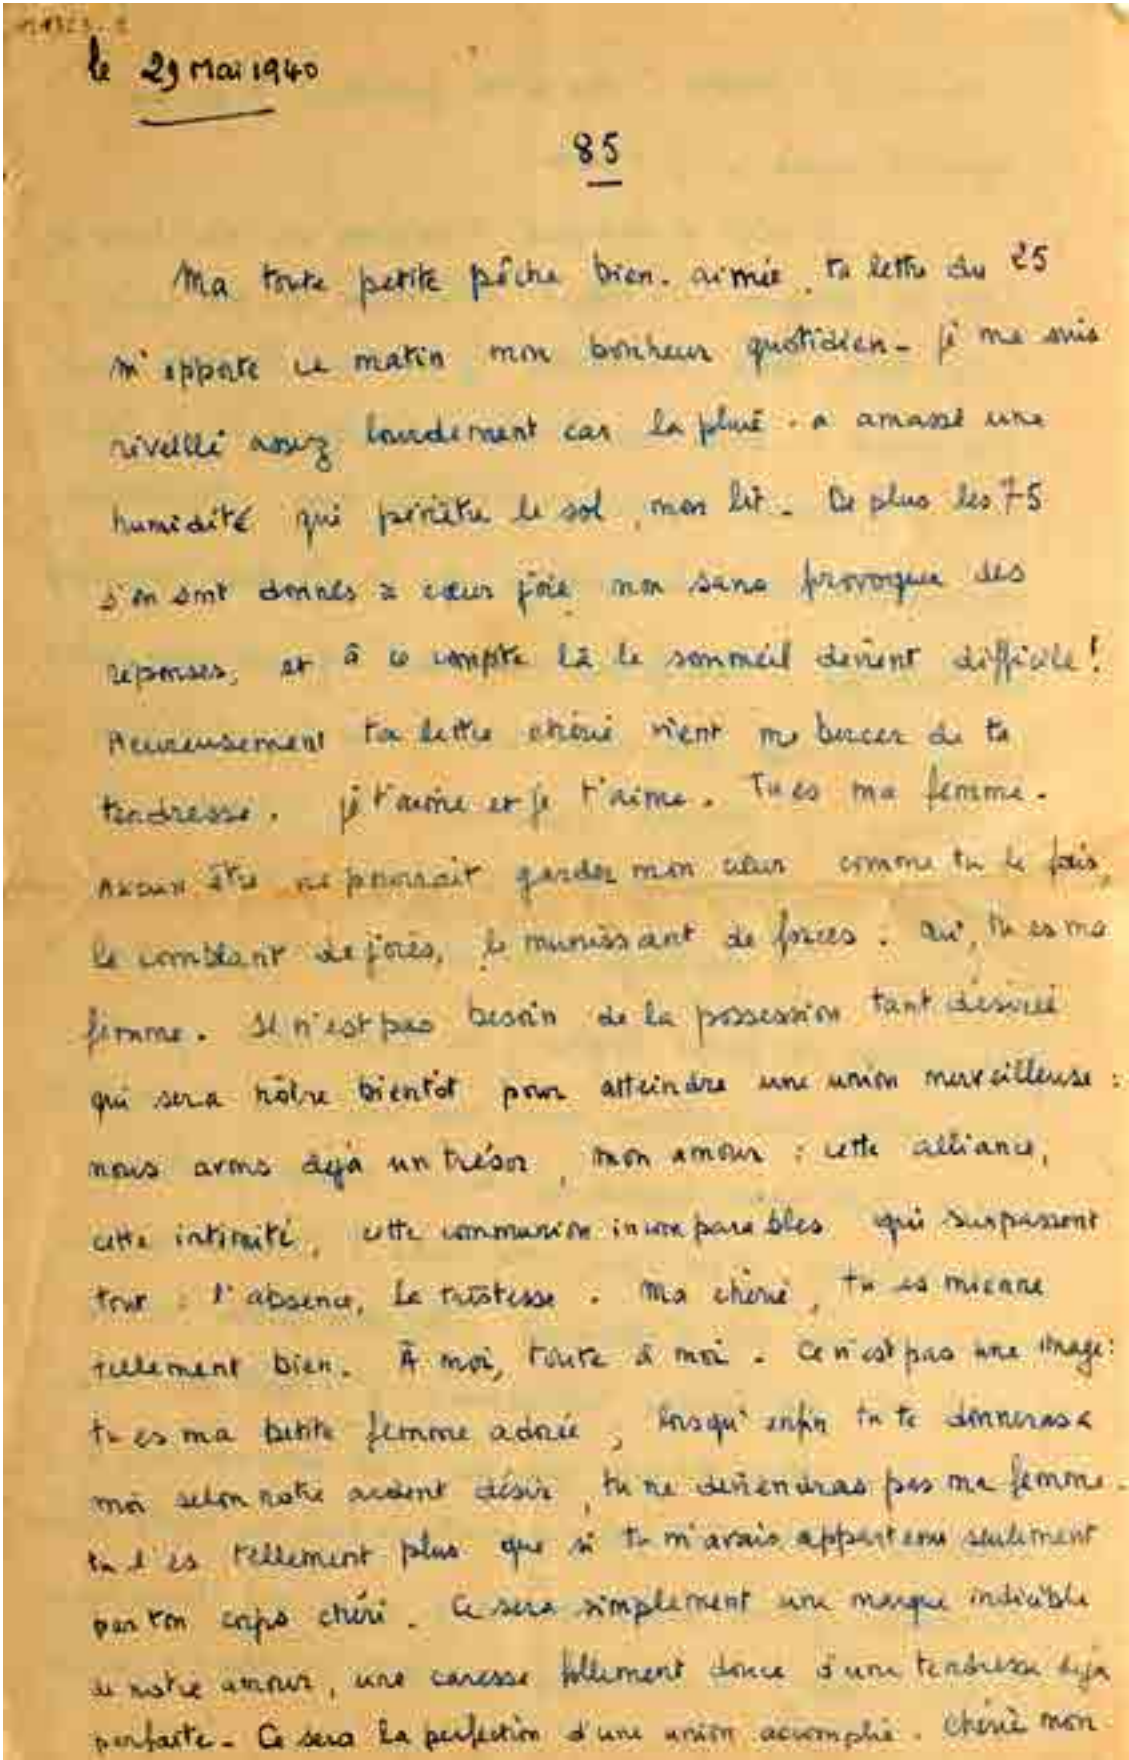 le 29 Mai 1940
85
Ma toute petite pêche bien-aimée, ta lettre du 25
m'apporte ce matin mon bonheur quotidien - je me suis
réveillé assez lourdement car la pluie a amassé une
humidité qui pénètre le sol, mon lit - De plus les 75
s'en sont donnés à cœur joie non sans provoquer des
réponses, et à ce compte là le sommeil devient difficile !
Heureusement ta lettre chérie vient me bercer de ta
tendresse. je t'aime et je t'aime. Tu es ma femme.
Aucun être ne pourrait garder mon cœur comme tu le fais,
le comblant de joies, le munissant de forces. Oui, tu es ma
femme. Il n'est pas besoin de la possession tant désirée
qui sera nôtre bientôt pour atteindre une union merveilleuse :
nous avons déjà un trésor, mon amour : cette alliance,
cette intimité, cette communion incomparables qui surpassent
tout : l'absence, la tristesse. Ma chérie, tu es mienne
tellement bien. À moi, toute à moi. Ce n'est pas une image :
tu es ma petite femme adorée, lorsqu'enfin tu te donneras à
moi selon notre ardent désir, tu ne deviendras pas ma femme.
tu l'es tellement plus que si tu m'avais appartenu seulement
par ton corps chéri. Ce sera simplement une marque indicible
de notre amour, une caresse follement douce d'une tendresse déjà
parfaite - Ce sera la perfection d'une union accomplie. Chérie mon